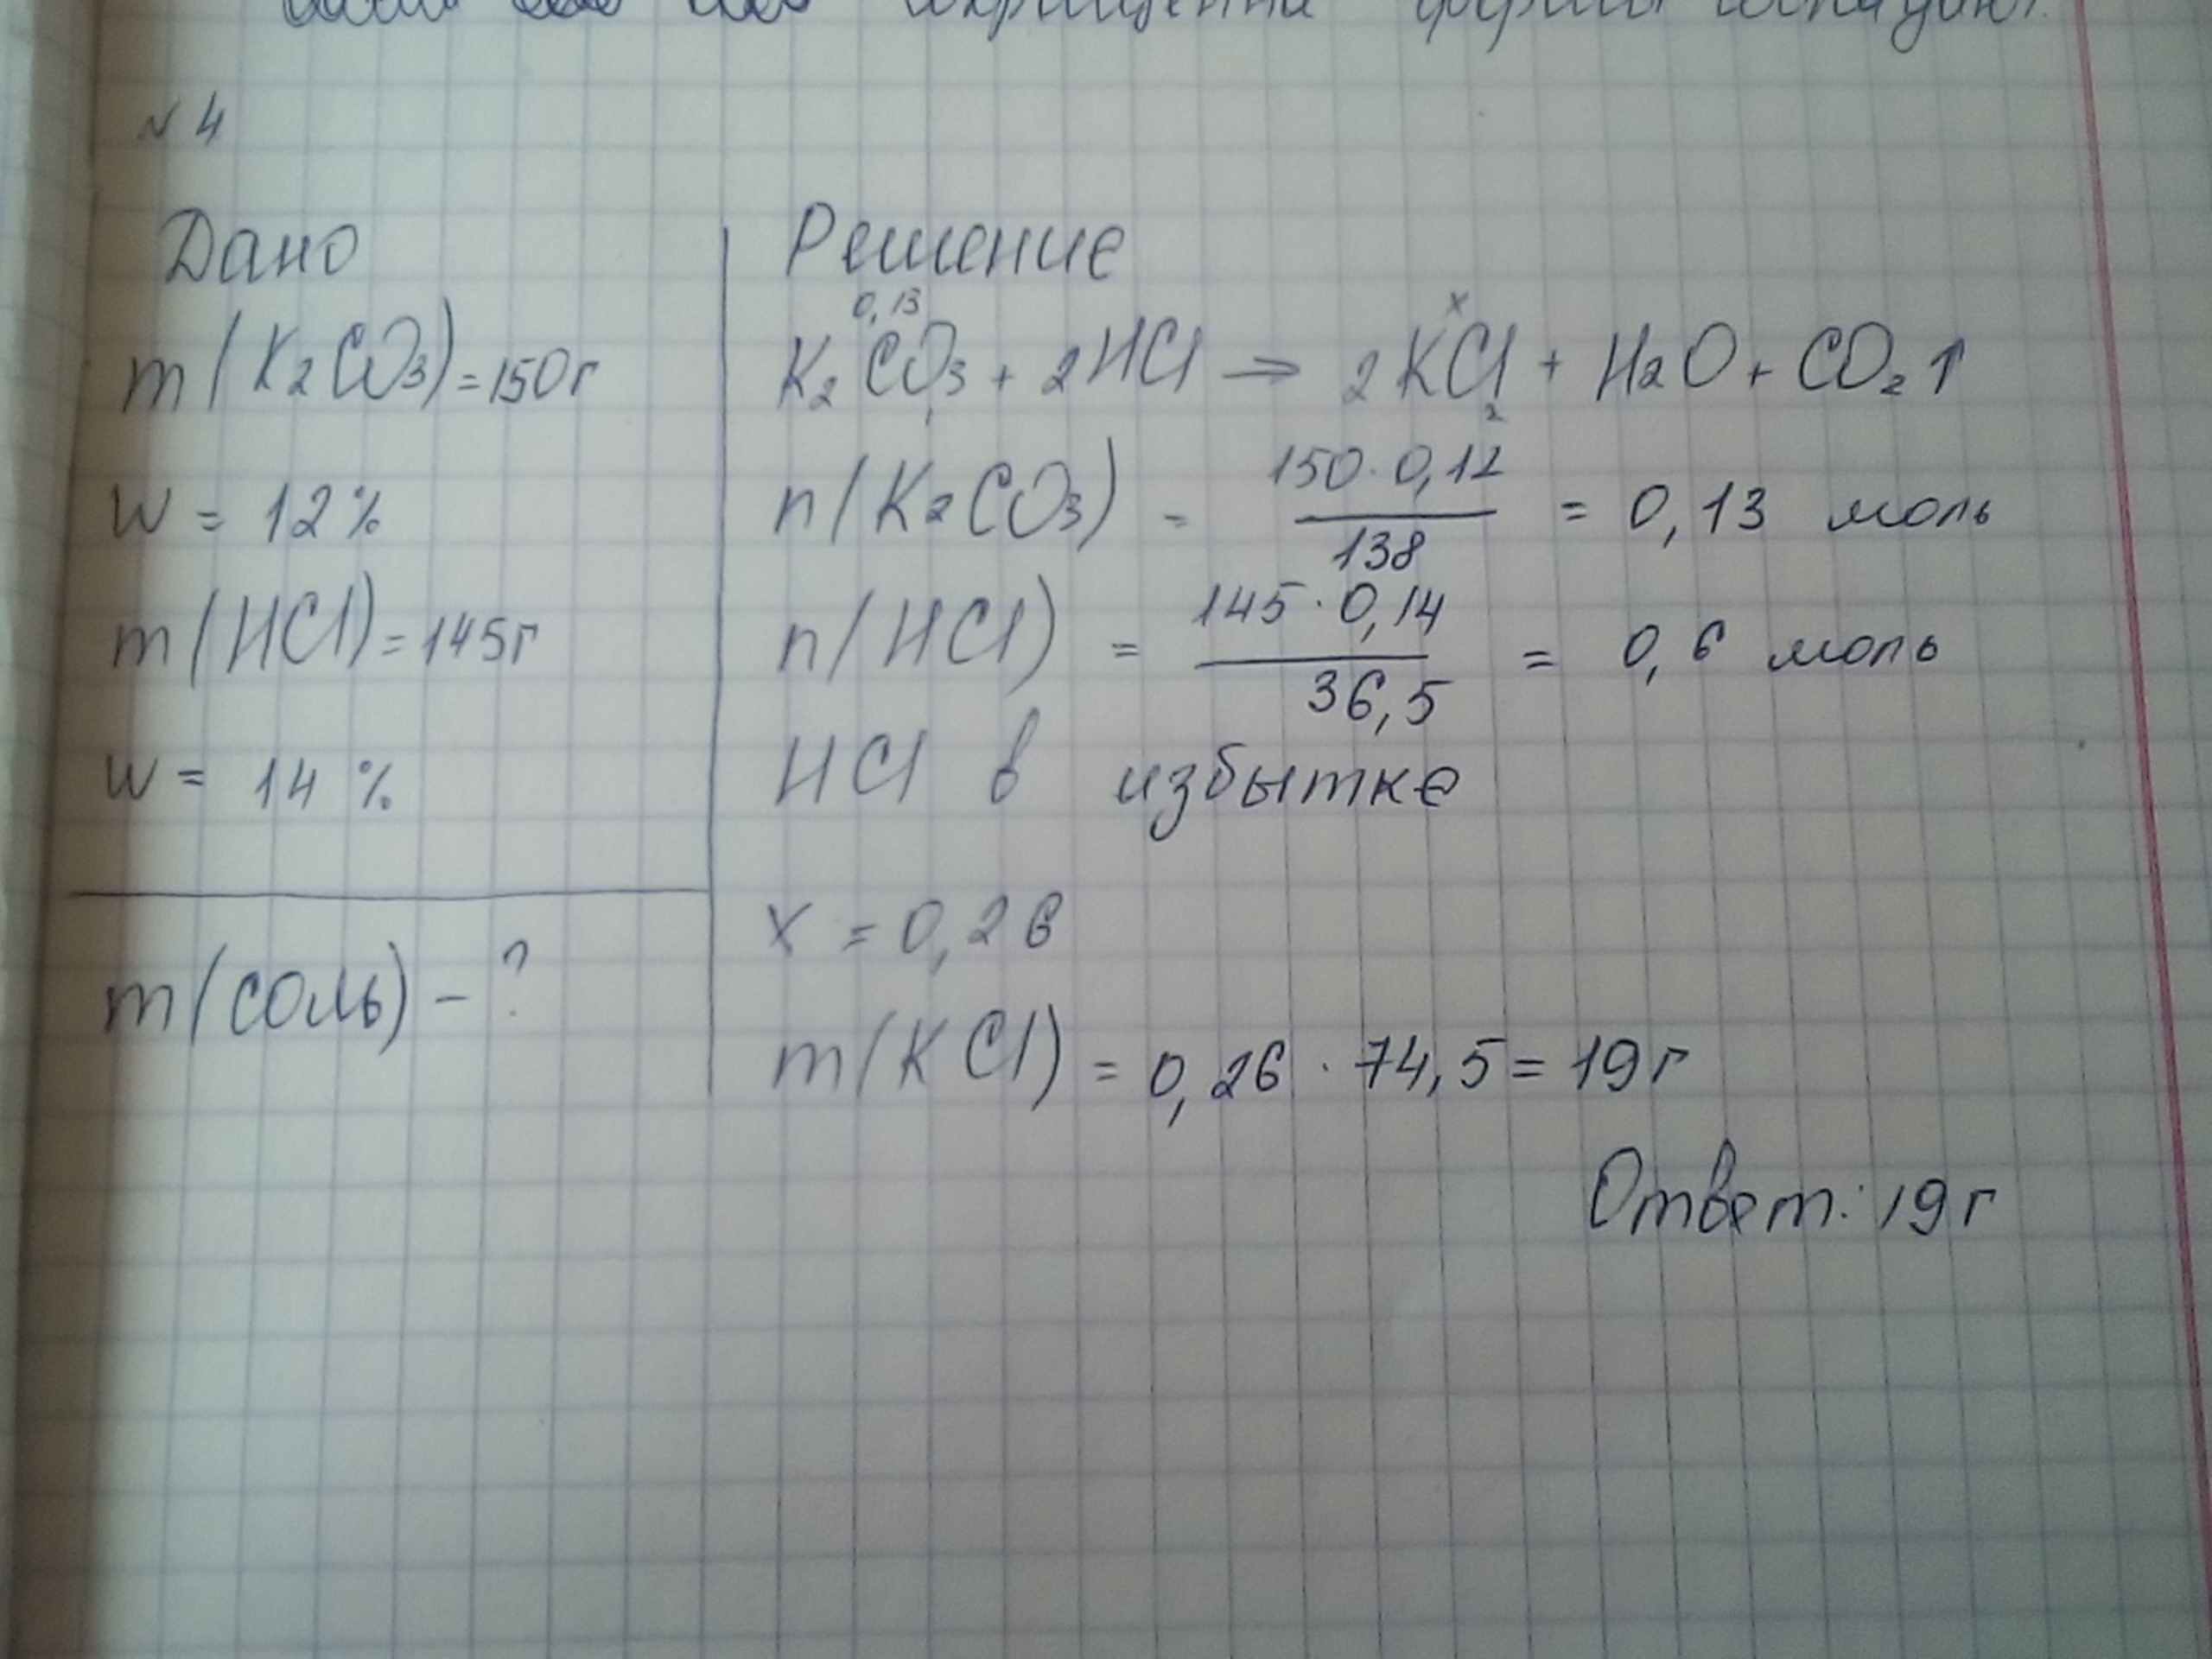 сокращенна формы совпадают.
№ 4
Дано
m(K2CO3)=150г
W = 12%
m(HCl)=145г
W = 14 %
m(соль) - ?
Решение
0,13 x
K2CO3 + 2HCl → 2KCl + H2O + CO2 ↑
1 2
n(K2CO3) = 150·0,12 / 138 = 0,13 моль
n(HCl) = 145·0,14 / 36,5 = 0,6 моль
HCl в избытке
X = 0,26
m(KCl) = 0,26 · 74,5 = 19г
Ответ: 19г